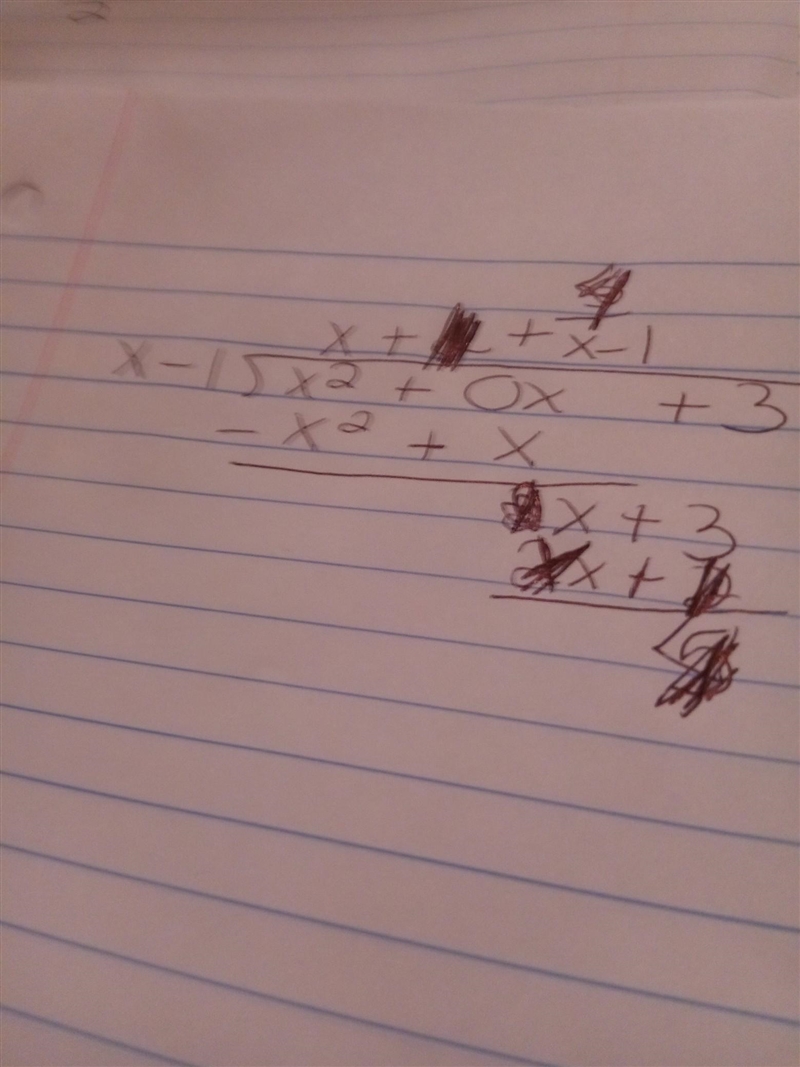 x + + 4/x-1
x-1 x² + 0x + 3
- x² + x
x + 3
x +